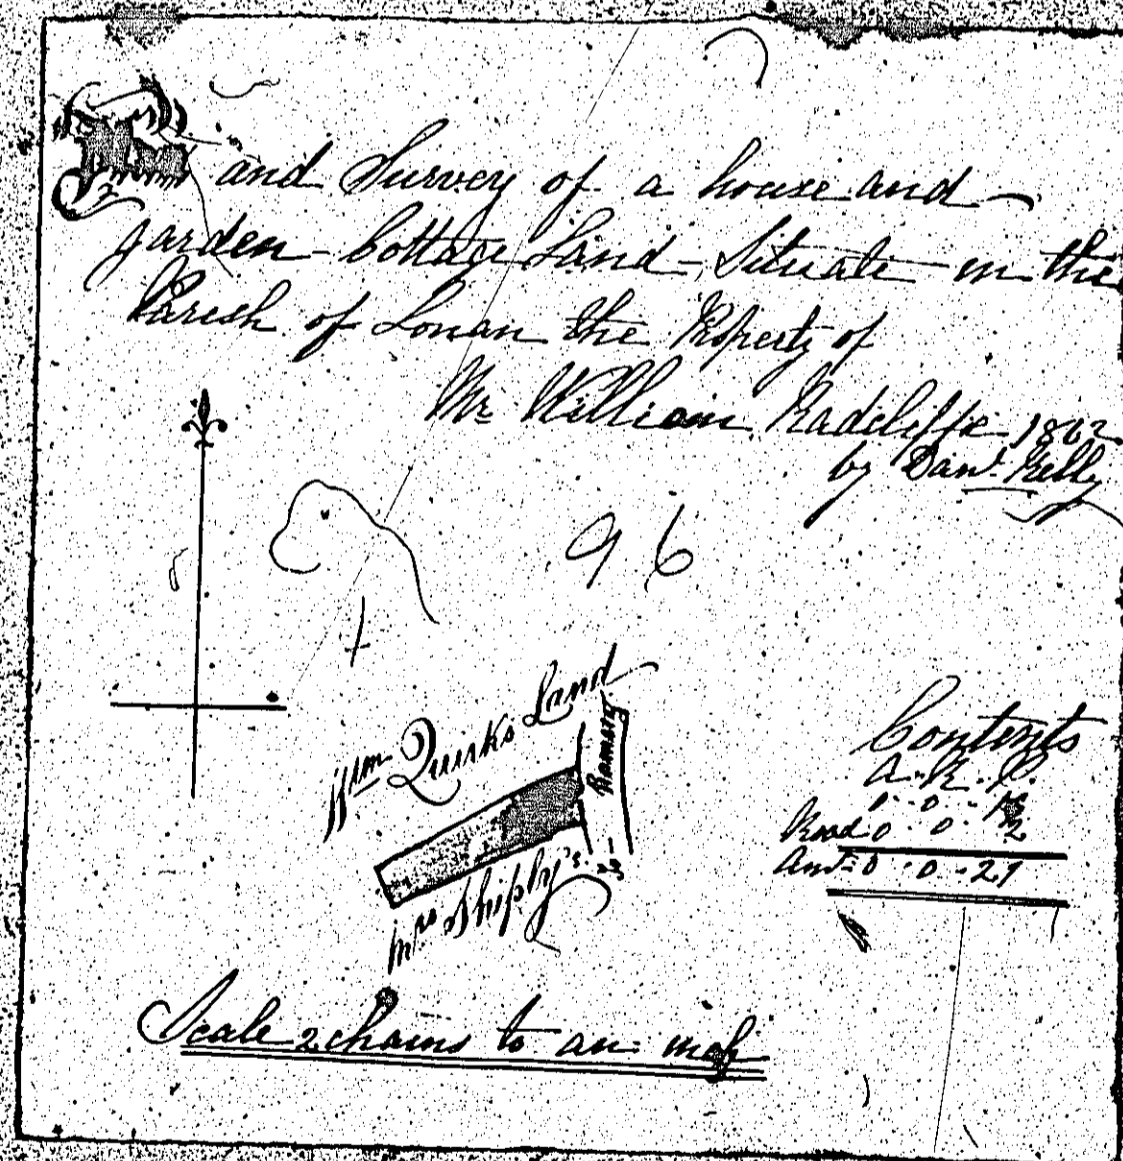 Plan and Survey of a house and
garden - Cottage Land - Situate in the
Parish of Lonan the Property of
Mr. William Radcliffe 1862
by Danl. Kelly
96
Wm Quirks Land
Ramsey
Mrs Shiply's
Contents
A. R. P.
Road 0 . 0 . 2
Amt = 0 . 0 . 29
Scale 2 chains to an inch